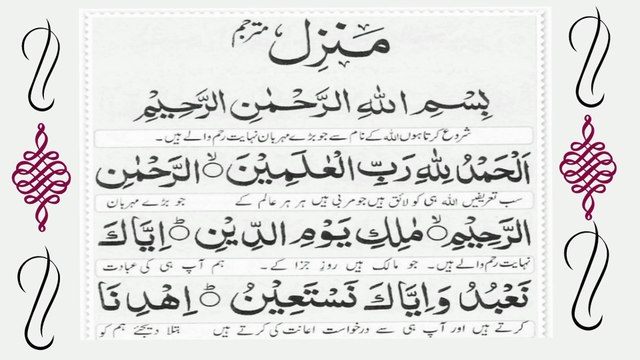 مَنزِل مترجم
بِسْمِ اللهِ الرَّحْمٰنِ الرَّحِيْمِ
شروع کرتا ہوں اللہ کے نام سے جو بڑے مہربان نہایت رحم والے ہیں۔
اَلْحَمْدُ لِلّٰهِ رَبِّ الْعٰلَمِيْنَ ۙ الرَّحْمٰنِ
سب تعریفیں اللہ ہی کو لائق ہیں جو مربی ہیں ہر ہر عالم کے جو بڑے مہربان
الرَّحِيْمِ ۙ مٰلِكِ يَوْمِ الدِّيْنِ ؕ اِيَّاكَ
نہایت رحم والے ہیں۔ جو مالک ہیں روزِ جزا کے۔ ہم آپ ہی کی عبادت
نَعْبُدُ وَاِيَّاكَ نَسْتَعِيْنُ ؕ اِهْدِنَا
کرتے ہیں اور آپ ہی سے درخواست اعانت کی کرتے ہیں بتلا دیجئے ہم کو